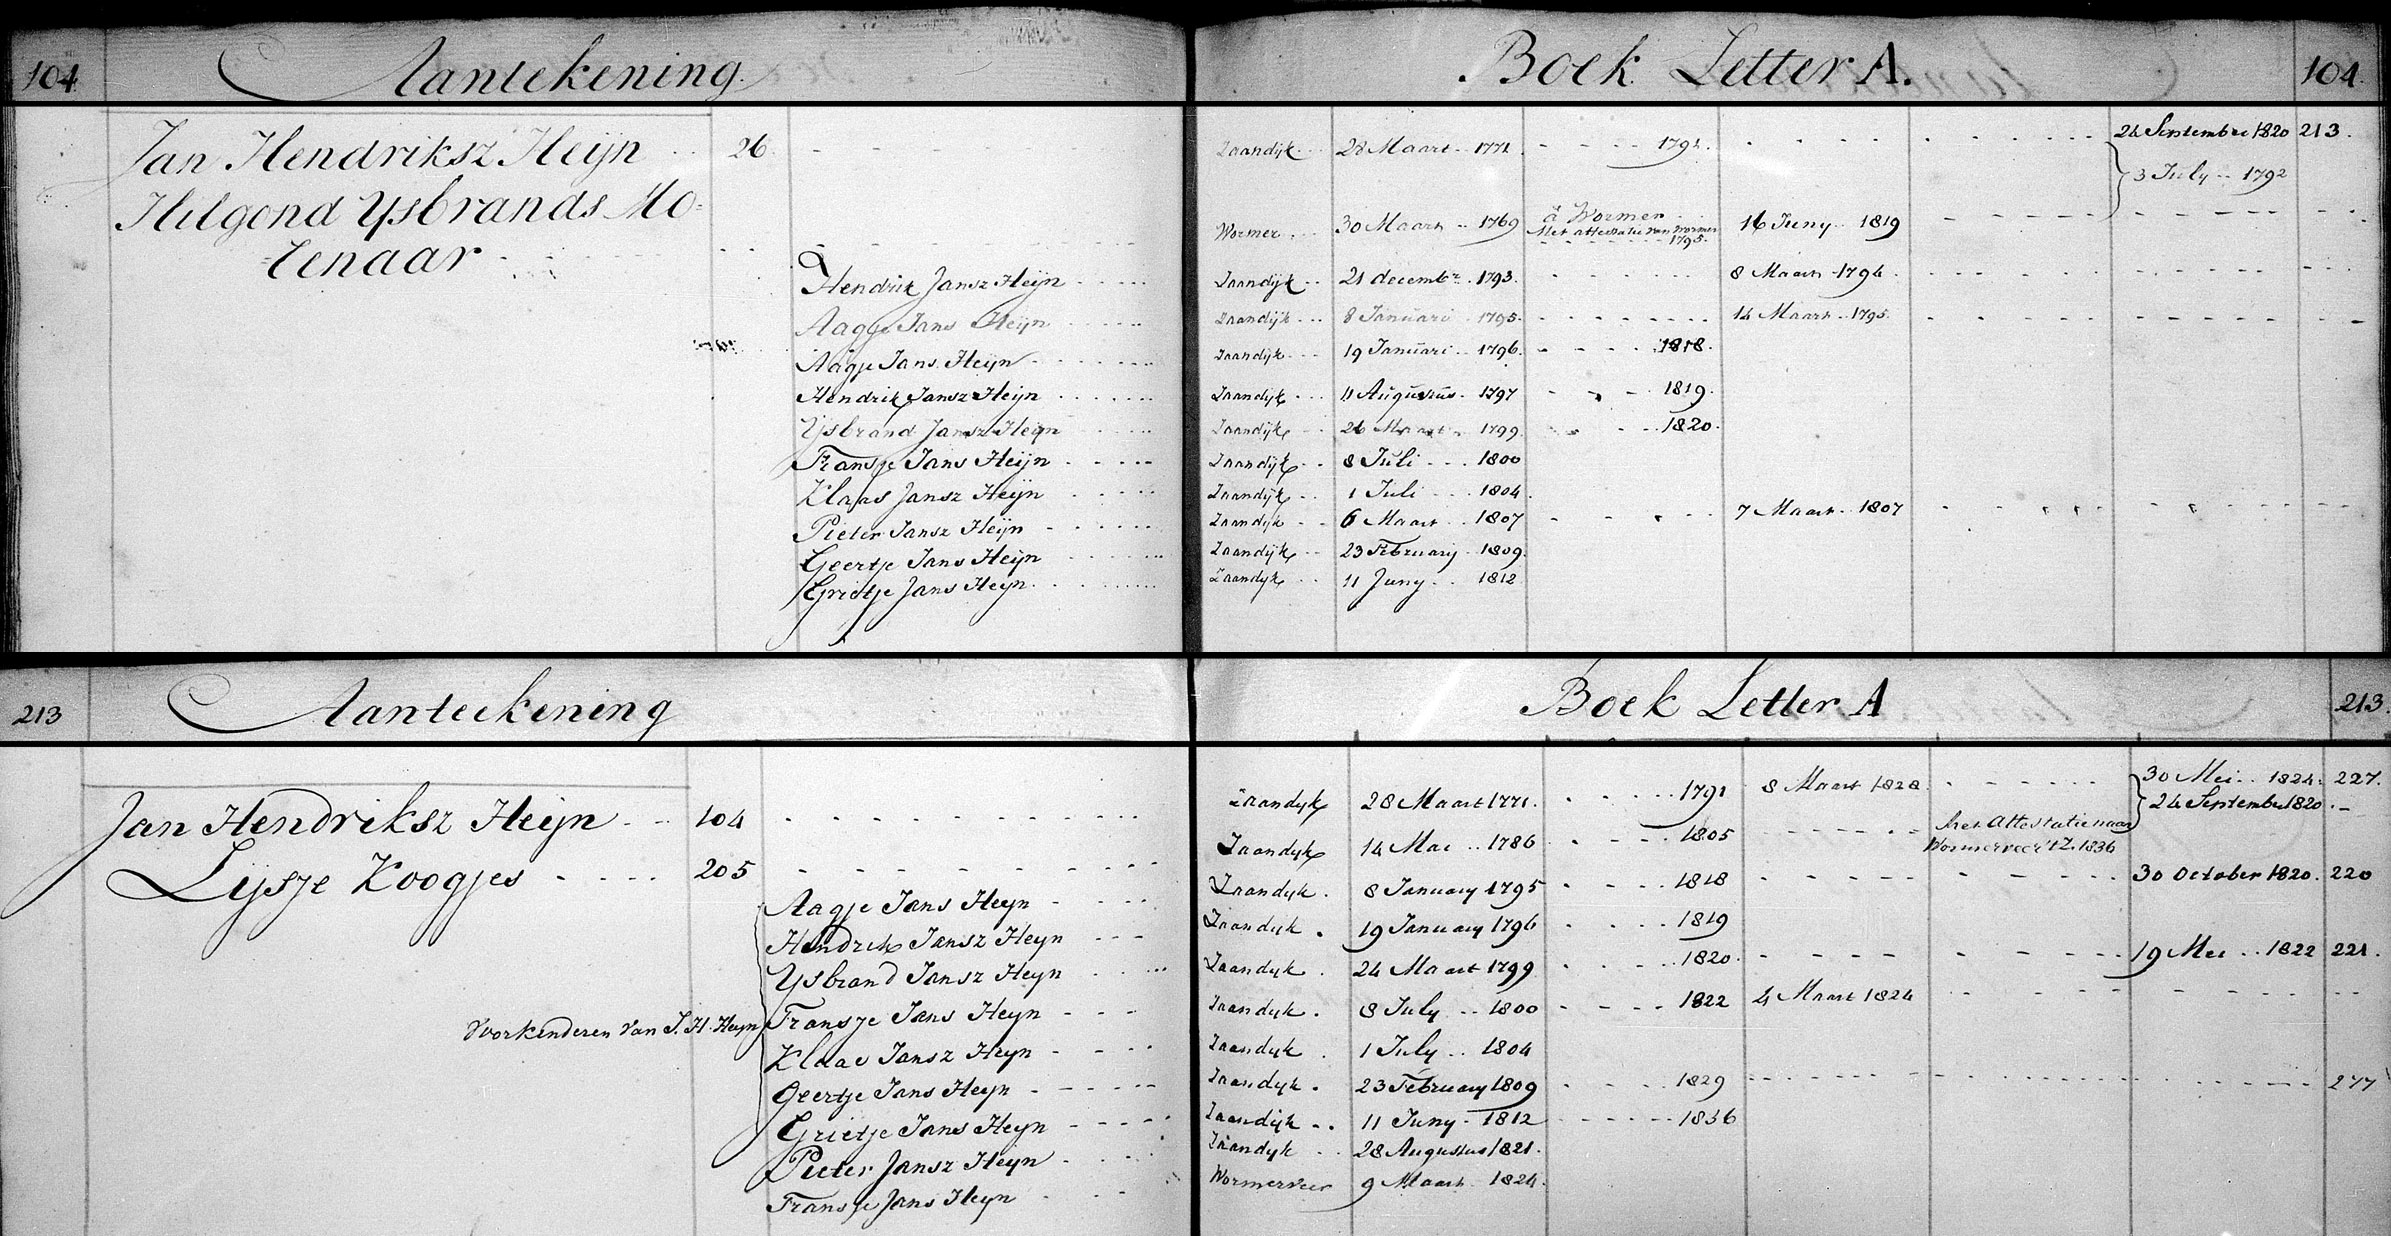 104 Aantekening Boek Letter A. 104.
24 September 1820 213.
Jan Hendriksz Heijn 26 Zaandijk 28 Maart 1771 1791.
3 July 1792
Hilgond Ysbrands Mo= Wormer 30 Maart 1769 à Wormer 16 Juny 1819
Met attestatie van Wormer
1795.
lenaar
Hendrik Jansz Heijn Zaandijk 21 decembr. 1793. 8 Maart 1794
Aagje Jans Heijn Zaandijk 8 Januari 1795. 14 Maart 1795.
Aagje Jans Heijn Zaandijk 19 Januari 1796. 1818.
Hendrik Jansz Heijn Zaandijk 11 Augustus 1797 1819.
Ysbrand Jansz Heijn Zaandijk 26 Maart 1799 1820.
Fransje Jans Heijn Zaandijk 8 Juli 1800
Klaas Jansz Heijn Zaandijk 1 Juli 1804
Pieter Jansz Heijn Zaandijk 6 Maart 1807 7 Maart 1807
Geertje Jans Heijn Zaandijk 23 February 1809.
Grietje Jans Heijn Zaandijk 11 Juny 1812
213 Aanteekening Boek Letter A 213.
30 Mei 1824. 227.
Jan Hendriksz Heijn 104 Zaandyk 28 Maart 1771. 1791 8 Maart 1828 24 September 1820
Lijsje Koogjes 205 Zaandyk 14 Mai 1786 1805 Met Attestatie naar
Wormerveer 1836
Aagje Jans Heyn Zaandyk. 8 January 1795 1818 30 October 1820. 220
Hendrik Jansz Heyn Zaandyk. 19 January 1796 1819
Ysbrand Jansz Heyn Zaandyk 24 Maart 1799 1820. 19 Mei 1822 221.
Voorkinderen van J. H. Heyn Fransje Jans Heyn Zaandyk. 8 July 1800 1822 4 Maart 1824
Klaas Jansz Heyn Zaandyk 1 July 1804
Geertje Jans Heyn Zaandyk. 23 February 1809 1829 277
Grietje Jans Heyn Zaandijk 11 Juny 1812 1836
Pieter Jansz Heyn Zaandyk 28 Augustus 1821.
Fransje Jans Heyn Wormerveer 9 Maart 1824.